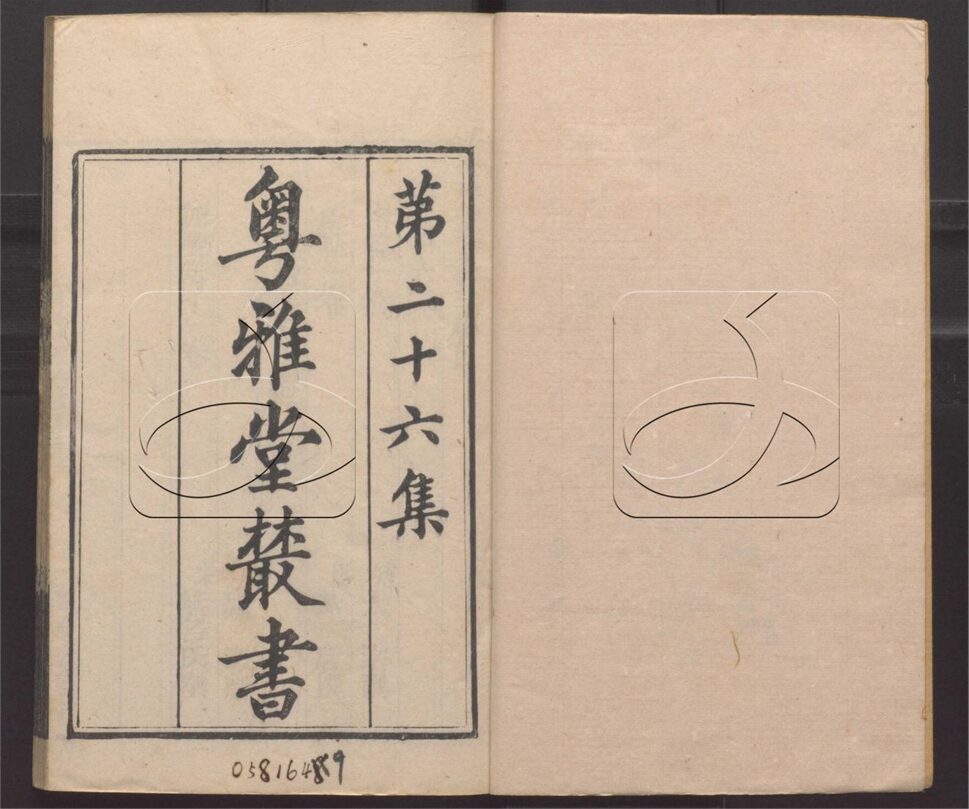 第二十六集
粤雅堂叢書